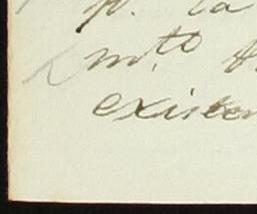 p. la
m.to
existen